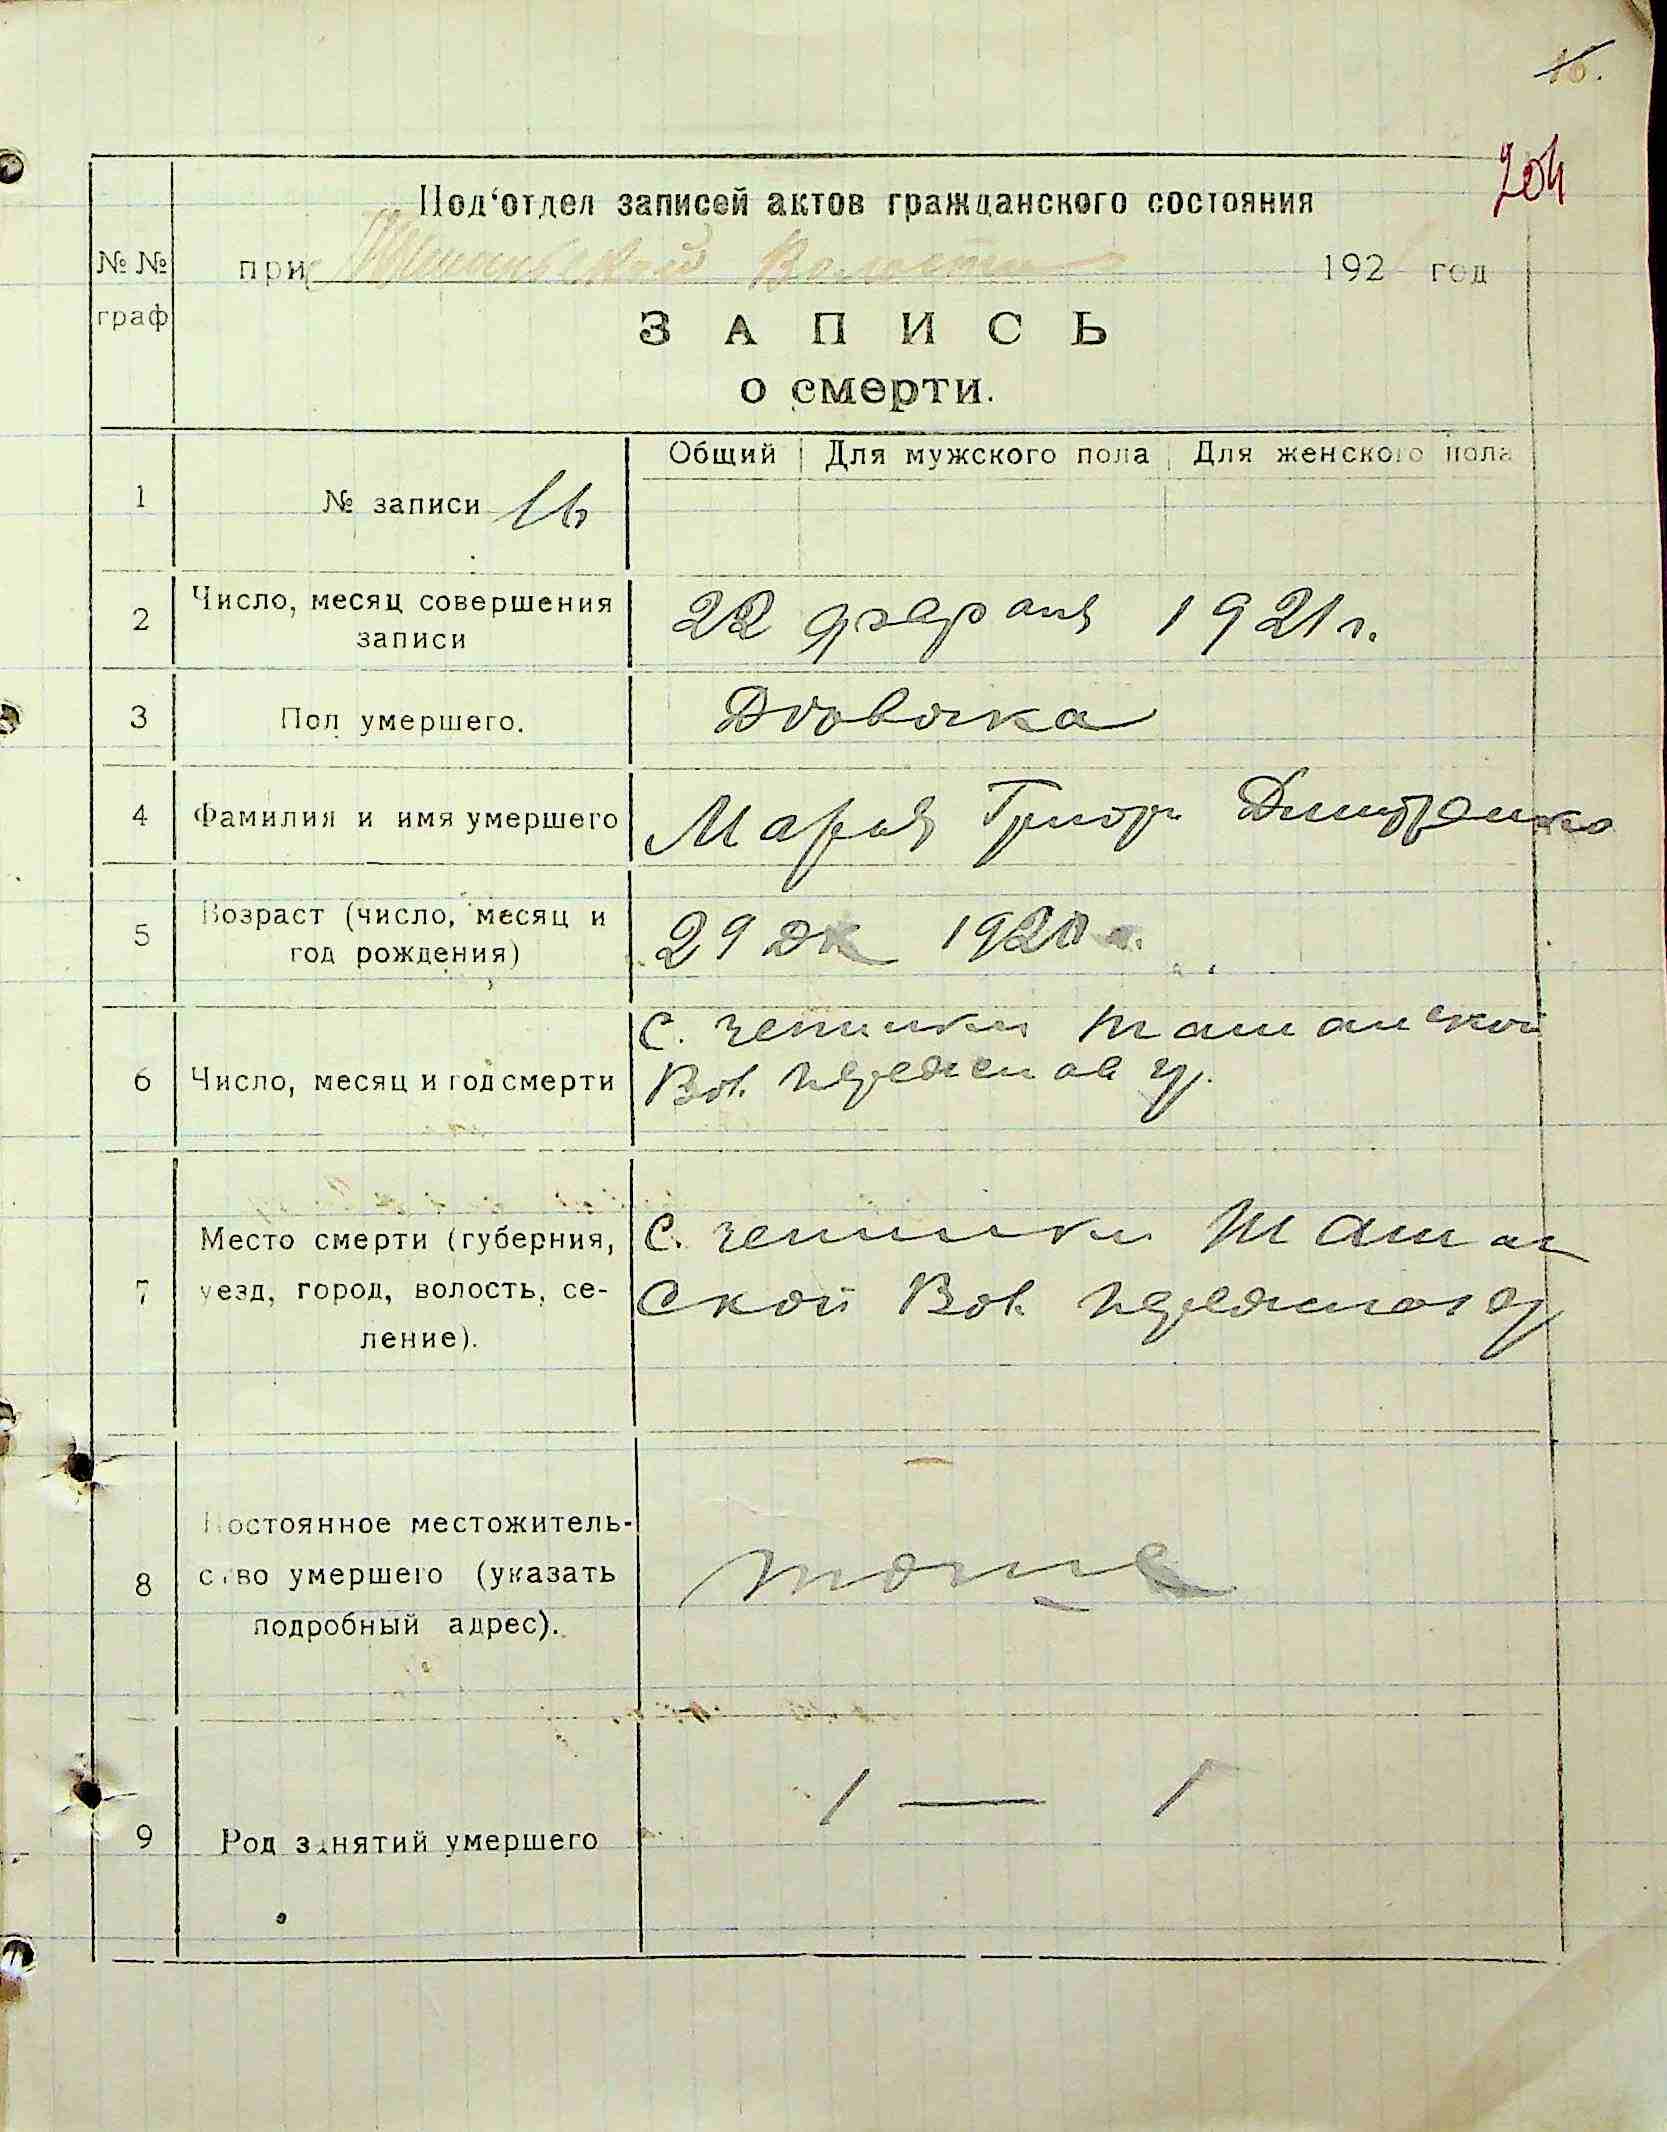 16.
204
Под‘отдел записей актов гражданского состояния
№№
граф
при Волости 192 год
ЗАПИСЬ
о смерти.
Общий Для мужского пола Для женского пола
1 № записи 16
2 Число, месяц совершения
записи
22 февраля 1921 г.
3 Пол умершего. Довочка
4 Фамилия и имя умершего Мария Григор Дмитренко
5 Возраст (число, месяц и
год рождения)
29 дк 1920 г.
6 Число, месяц и год смерти
С. чепилки Ташанской
Вол. переяслав у.
7 Место смерти (губерния,
уезд, город, волость, се-
ление).
С. чепилки Ташан
ской Вол. переяслав у
8 Постоянное местожитель-
ство умершего (указать
подробный адрес).
тоже
9 Род занятий умершего